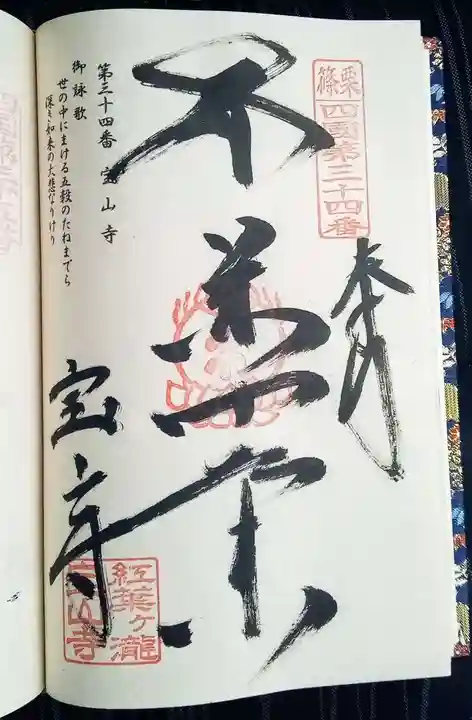 篠栗
四國第三十四番
奉拝
薬師
宝山寺
紅葉ヶ瀧
宝山寺
第三十四番 宝山寺
御詠歌
世の中にまける五穀のたねまでら
深き如来の大悲なりけり